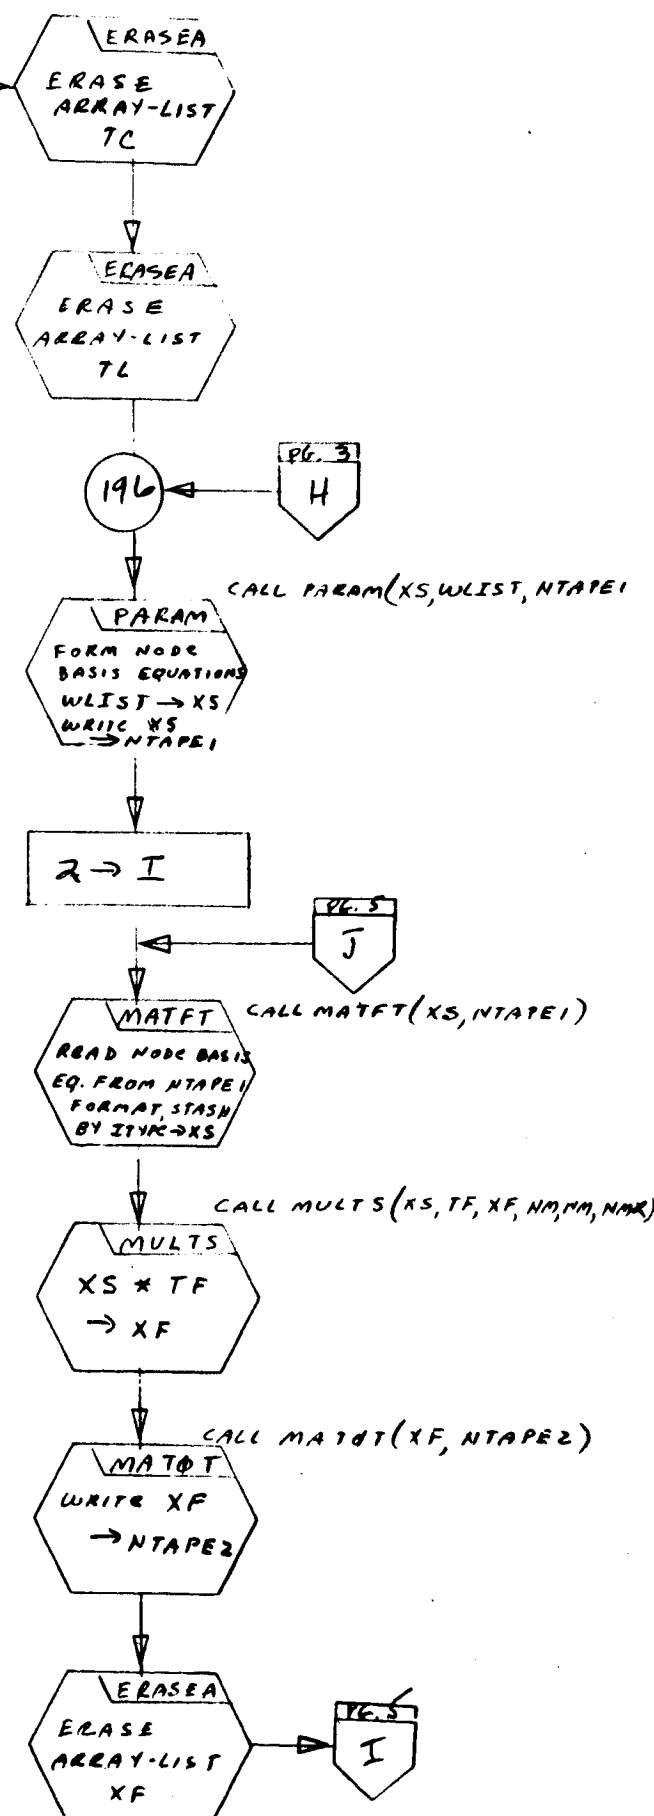 ERASEA
ERASE
ARRAY-LIST
TC
ERASEA
ERASE
ARRAY-LIST
TL
196
PG. 3
H
CALL PARAM(XS,WLIST, NTAPE1
PARAM
FORM NODE
BASIS EQUATIONS
WLIST → XS
WRITE XS
→ NTAPE1
2 → I
PG. 5
J
CALL MATFT(XS,NTAPE1)
MATFT
READ NODE BASIS
EQ. FROM NTAPE1
FORMAT, STASH
BY ITYPE→XS
CALL MULTS(XS, TF, XF, NM,NM, NMR)
MULTS
XS * TF
→ XF
CALL MATØT(XF, NTAPE2)
MATØT
WRITE XF
→ NTAPE2
ERASEA
ERASE
ARRAY-LIST
XF
PG. 5
I